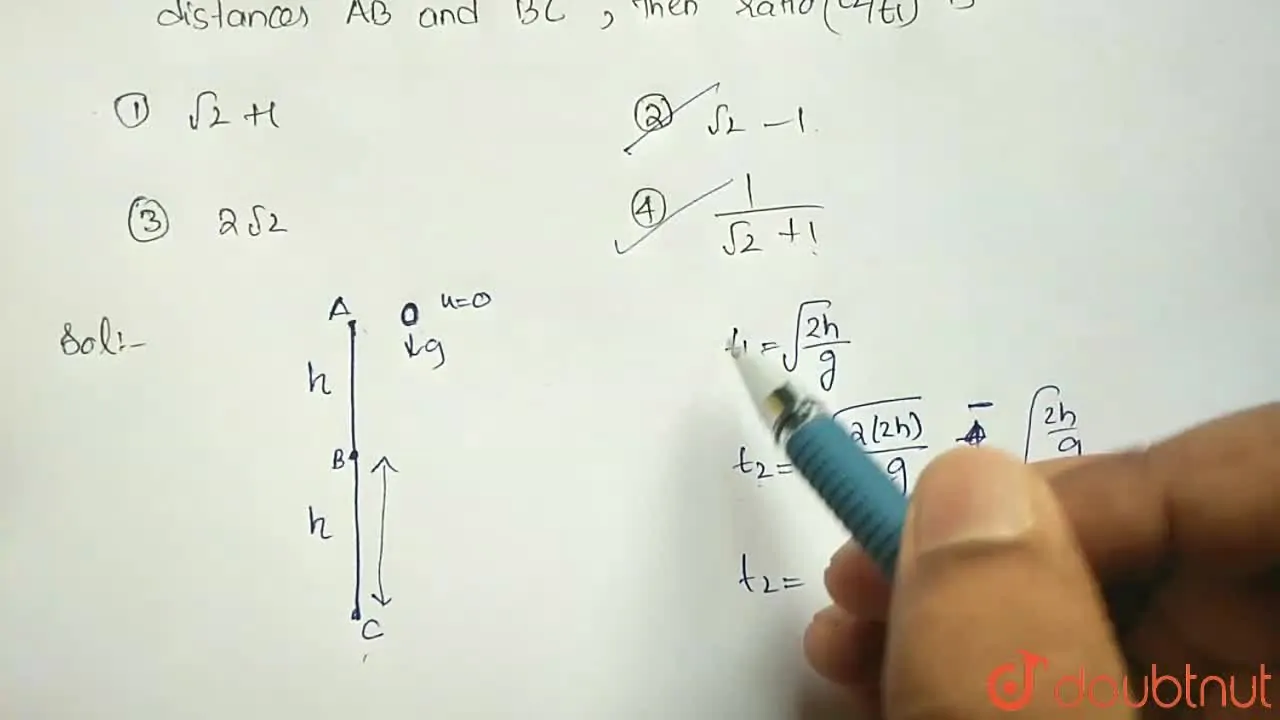 distances AB and BC , then ratio (t2/t1) is
① √2 +1
② √2 -1.
③ 2√2
④ 1/(√2 +1)
Sol:-
A
u=0
g
h
B
h
C
t1 = √(2h/g)
t2 = √(2(2h)/g) - √(2h/g)
t2 =
doubtnut